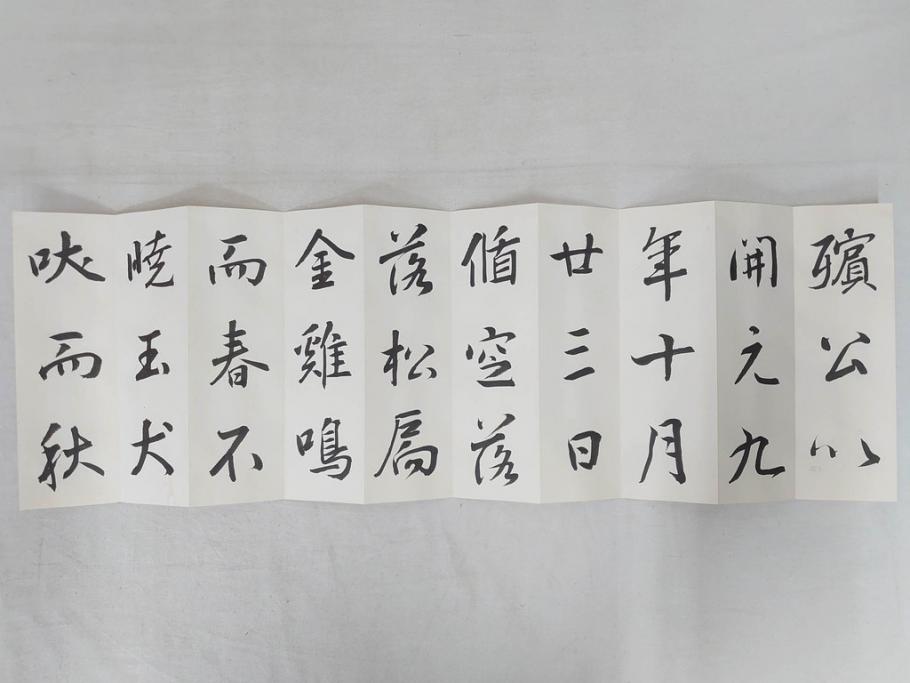 殯公以
開元九
年十月
廿三日
循空落
落松扃
金雞鳴
而春不
暁玉犬
吠而秋